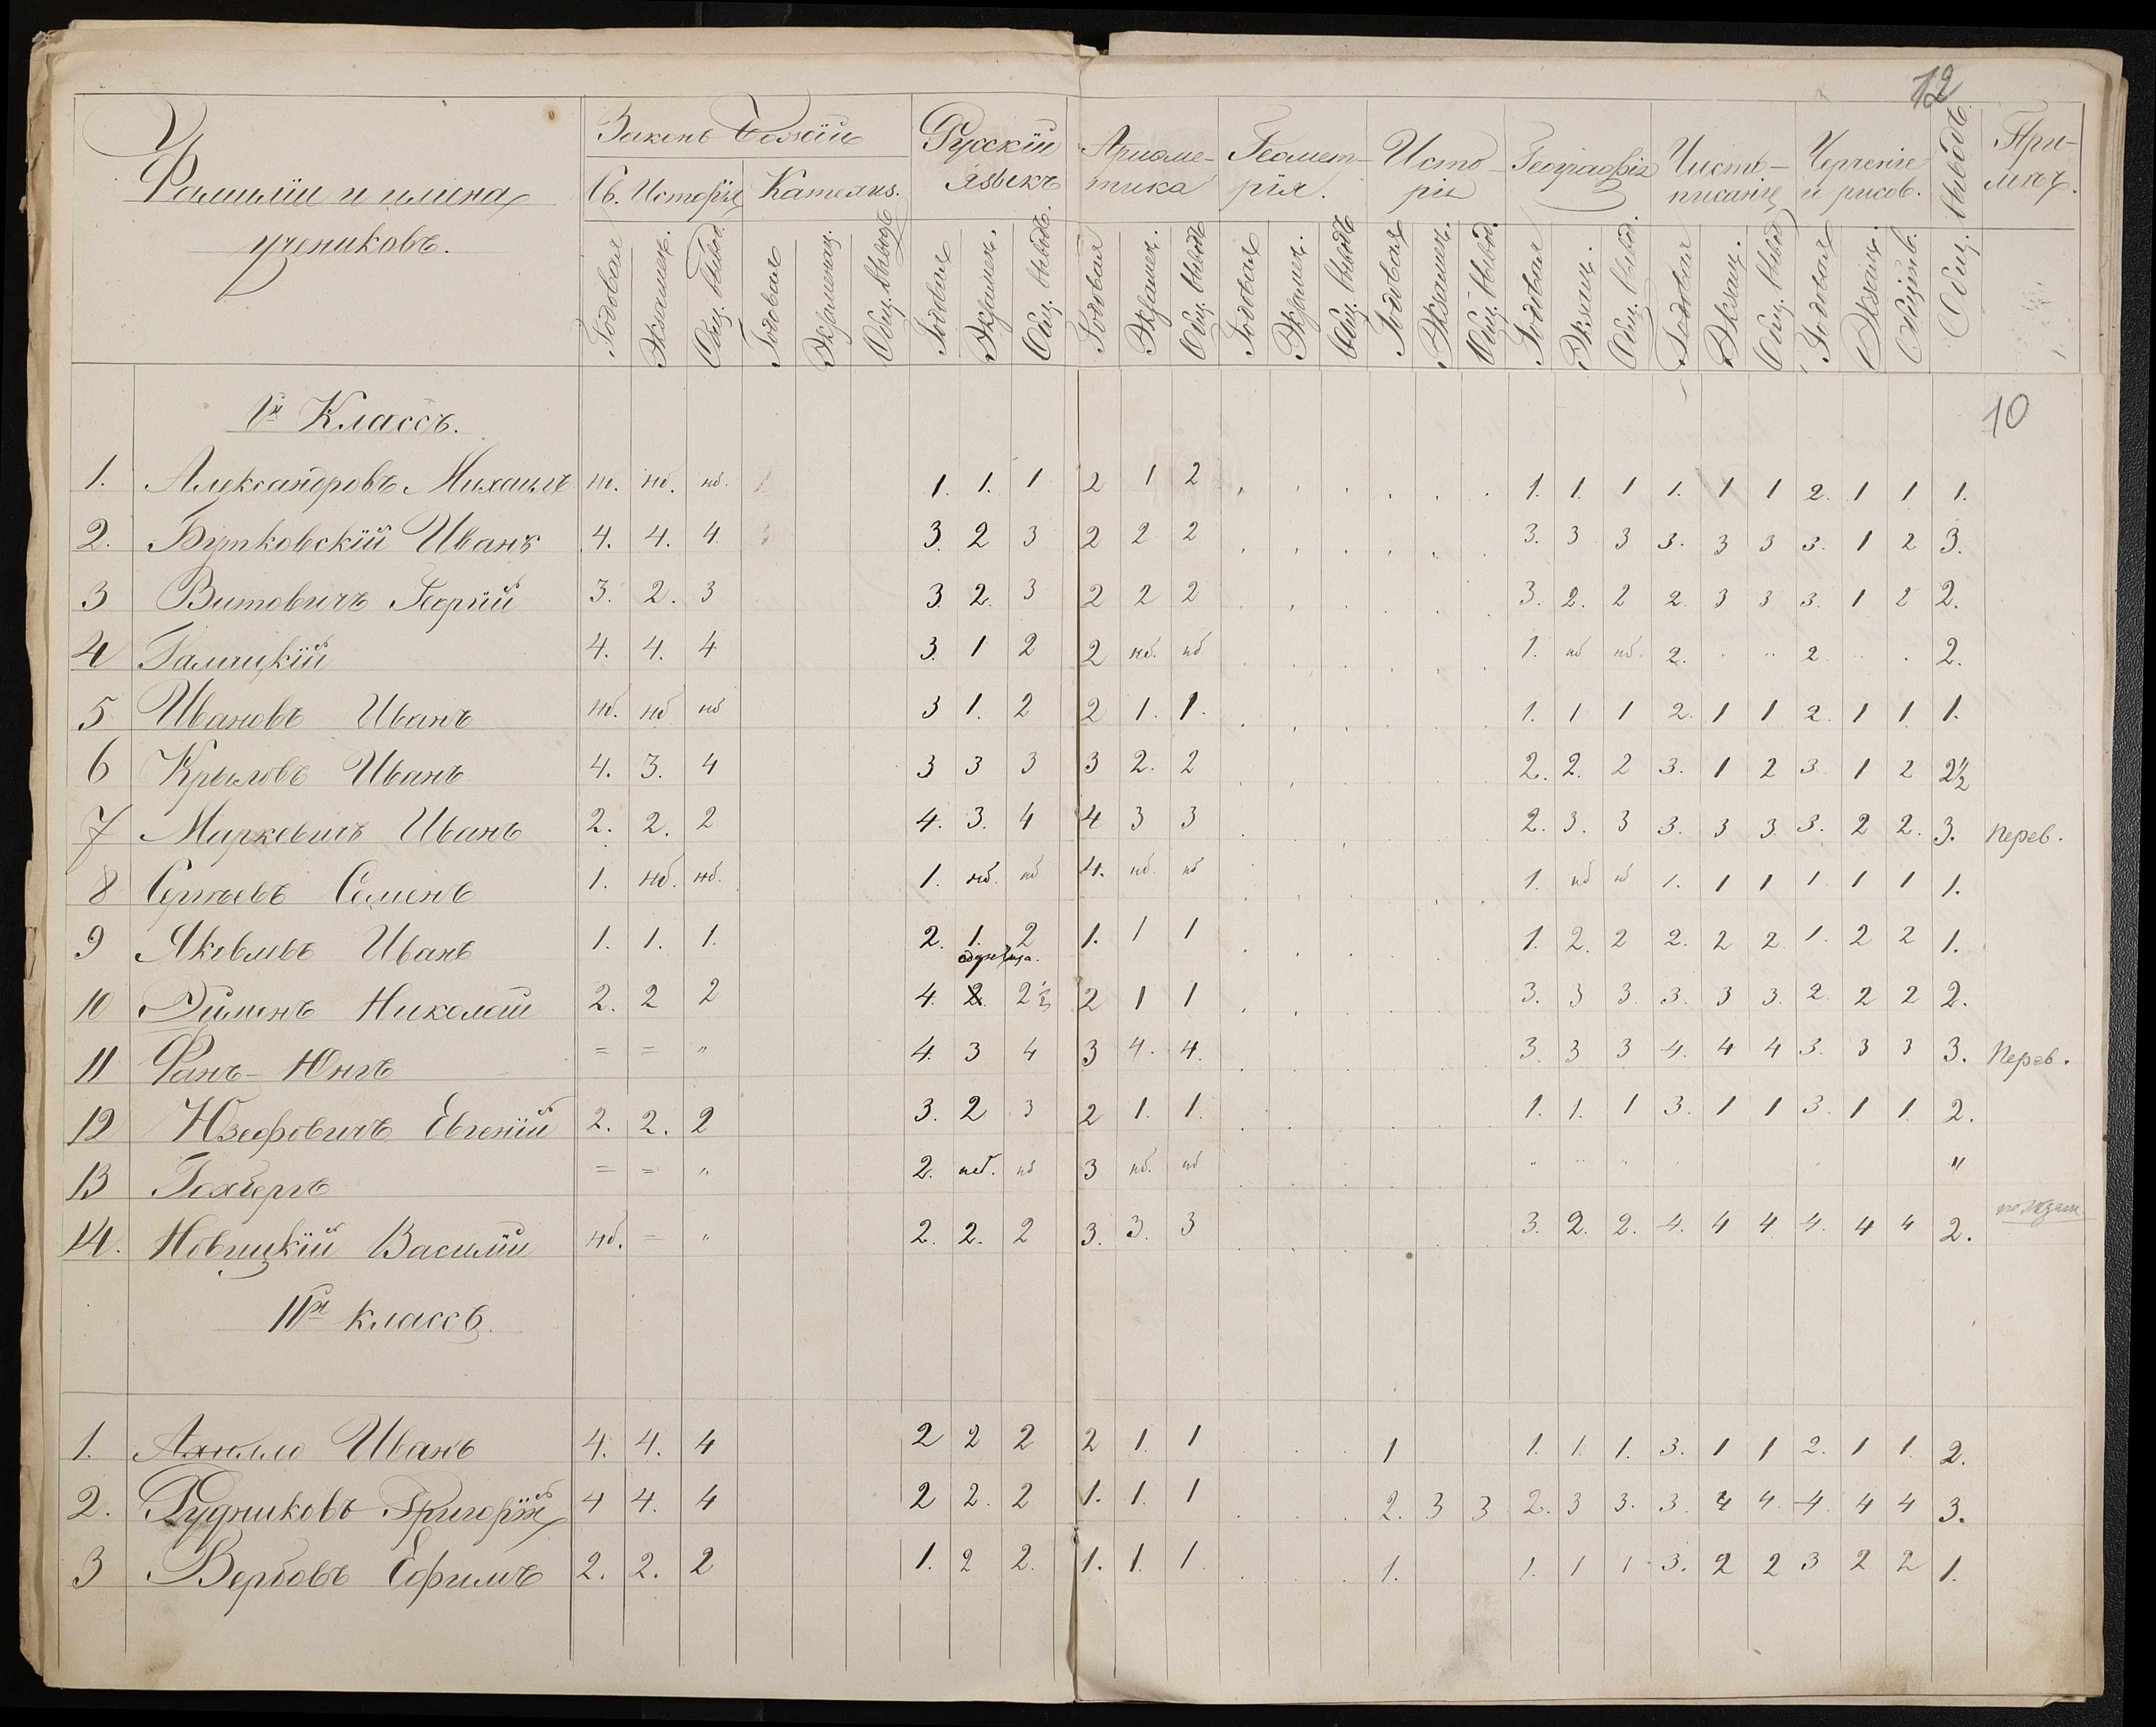 12
Фамиліи и имена
учениковъ.
Законъ Божій
Св. Исторія Катехиз.
Русскій
языкъ
Ариөме-
тика
Геомет-
рія.
Исто-
рія
Географія
Чисто-
писаніе
Черченіе
и рисов.
Общ. выводъ.
При-
мѣч.
Годовая Экзамен. Общ. вывод. Годовая Экзаменац. Общ. выводъ Годовая Экзамен. Общ. выводъ. Годовая Экзамен. Общ. выводъ Годовая Экзамен. Общ. выводъ Годовая Экзамен. Общ. вывод. Годовая Экзам. Общ. вывод. Годовая Экзам. Общ. вывод Годовая Экзам. Общій в.
Iй Классъ. 10
1. Александровъ Михаилъ нб. нб. нб. 1. 1. 1 2 1 2 1. 1. 1 1. 1 1 2. 1 1 1.
2. Бутковскій Иванъ 4. 4. 4. 3. 2 3 2 2 2 3. 3 3 3. 3 3 3. 1 2 3.
3 Витовичъ Георгій 3. 2. 3 3. 2. 3 2 2 2 3. 2. 2 2. 3 3 3. 1 2 2.
4 Галицкій 4. 4. 4 3. 1 2 2 нб. нб 1. нб нб. 2. 2 2.
5 Ивановъ Иванъ нб. нб нб 3 1. 2 2 1. 1. 1. 1 1 2. 1 1 2. 1 1. 1.
6 Крыловъ Иванъ 4. 3. 4 3 3 3 3 2. 2 2. 2. 2 3. 1 2 3. 1 2 2½
7 Маркевичъ Иванъ 2. 2. 2 4. 3. 4 4 3 3 2. 3. 3 3. 3 3. 3. 2 2. 3. Перев.
8 Сергѣевъ Семенъ 1. нб. нб. 1. нб. нб 4. нб. нб 1. нб нб 1. 1 1 1. 1 1 1.
9 Яковлевъ Иванъ 1. 1. 1. 2. 1. 2 1. 1 1 1. 2. 2 2. 2 2. 1. 2 2 1.
10 Димонъ Николай 2. 2 2 4. 2. 2½ 2 1 1 3. 3 3. 3. 3 3. 2 2 2 2.
11 Фанъ-Юнгъ = = " 4. 3 4 3 4. 4. 3. 3 3 4. 4 4 3. 3 3 3. Перев.
12 Юзефовичъ Евгеній 2. 2. 2 3. 2 3 2 1. 1. 1. 1. 1 3. 1 1 3. 1 1. 2.
13 Гохбергъ = = " 2. нб. нб 3 нб. нб "
14. Новицкій Василій нб. = " 2. 2. 2 3. 3. 3 3. 2. 2. 4. 4 4 4. 4 4 2.
IIй классъ.
1. Иванъ 4. 4. 4 2 2 2 2 1. 1 1 1. 1. 1. 3. 1 1 2. 1 1. 2.
2. Рудниковъ Григорій 4 4. 4 2 2. 2 1. 1. 1 2. 3 3 2. 3 3. 3. 4 4. 4. 4 4 3.
3 Вербовъ Ефимъ 2. 2. 2 1. 2 2. 1. 1. 1 1. 1. 1 1 3. 2 2 3 2 2 1.